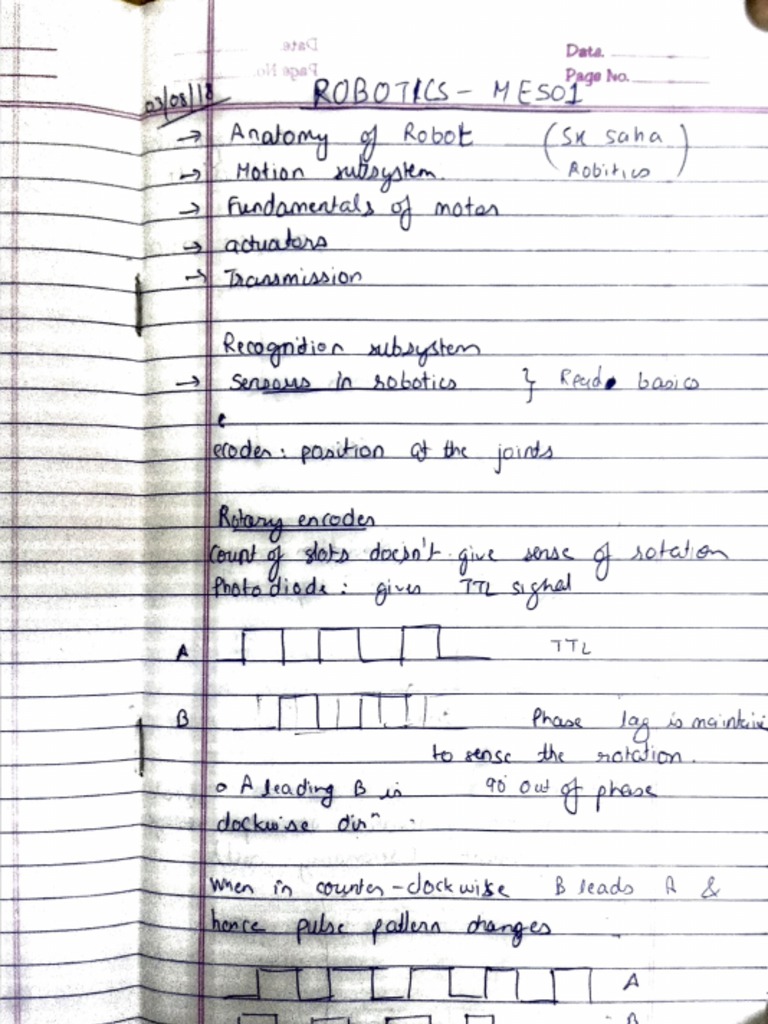 Date.
Page No.
03/08/18 ROBOTICS - ME501
→ Anatomy of Robot (SK Saha
→ Motion subsystem. Robitics)
→ Fundamentals of motor
→ actuators
→ Transmission
Recognition subsystem
→ Sensors in robotics } Read basics
e
ecoder: position at the joints
Rotary encoder
Count of slots doesn't give sense of rotation
Photodiode: gives TTL signal
A TTL
B Phase lag is maintain
to sense the rotation.
o A leading B is 90° out of phase
clockwise dirⁿ
When in counter-clockwise B leads A &
hence pulse pattern changes
A
B